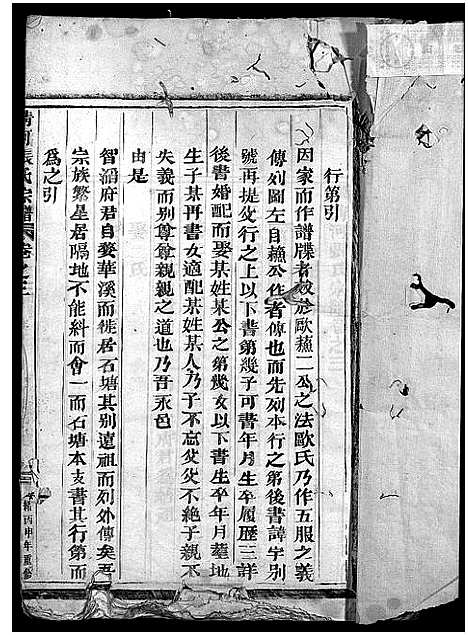 行第引
因家而作譜牒者放於歐蘇二公之法歐氏乃作五服之義
傳列圖左自蘇公作者傳也而先列本行之第後書諱字別
號再提父行之上以下書第幾子可書年月生卒履歷三詳
後書婚配而娶某姓某公之第幾女以下書生卒年月塟地
生子某再書女適配某姓某人乃子不忘父父不絶子親不
失義而别尊尊親親之道也乃吾永邑
由是
智涌府君自婺華溪而徙居石塘其别遠祖而列外傳矣吾
宗族繁星居隔地不能糾而會一而石塘本支書其行第而
為之引
清河張氏宗譜 卷之二
丙申年重修